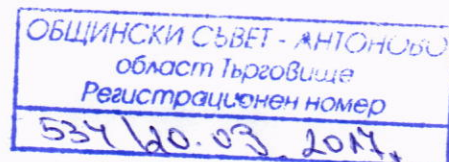 ОБЩИНСКИ СЪВЕТ - АНТОНОВО
област Търговище
Регистрационен номер
534 / 20.03.2017г.